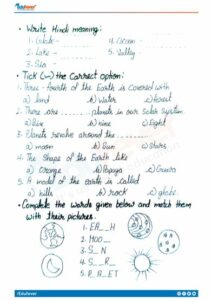 EduFever
• Write Hindi meaning:
1. Globe - 4. Ocean -
2. Lake - 5. Valley
3. Sea -
• Tick (✓) the Correct option:
1. Three-fourth of the Earth is covered with
a) land b) Water c) forest
2. There are ........ planets in our solar system.
a) Five b) nine c) Eight
3. Planets revolve around the
a) moon b) Sun c) Stars
4. The Shape of the Earth like
a) Orange b) Papaya c)
5. A model of the earth is called
a) hills b) rock c) globe
• Complete the words given below and match them
with their pictures.
1. ER__H
2. MOO_
3. S_N
4. S__R_
5. P_A_ET